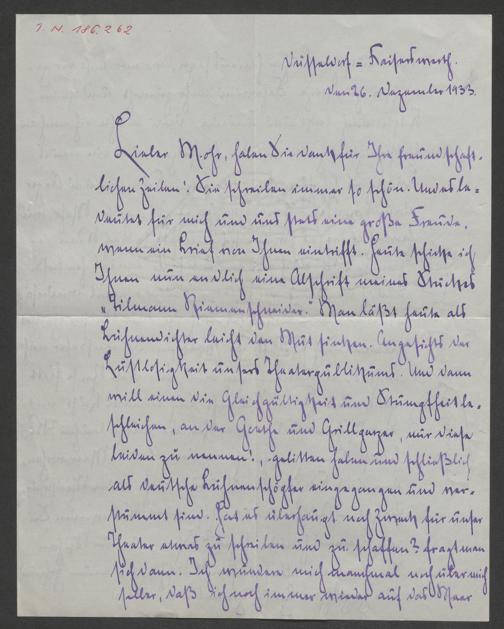 I. N. 186.262
Düsseldorf = Kaiserswerth.
den 26. Dezember 1933.
Lieber Mohr, haben Sie dank für Ihre freundschaft-
lichen Zeilen! Sie schreiben immer so schön. Und es be-
deutet für mich und uns stets eine große Freude,
wenn ein Brief von Ihnen eintrifft. Heute schicke ich
Ihnen nun endlich eine Abschrift meines Stückes
„Tilmann Riemenschneider.“ Man läßt heute als
Bühnendichter leicht den Mut sinken. Angesichts der
Lustlosigkeit unsers Theaterpublikums. Und dann
will einen die Gleichgültigkeit und Stumpfheit be-
schleichen, an der Goethe und Grillparzer, nur diese
beiden zu nennen!, gelitten haben und schließlich
als deutsche Bühnenschöpfer eingegangen und ver-
stummt sind. Hat es überhaupt noch Zweck für unser
Theater etwas zu schreiben und zu schaffen? fragt man
sich dann. Ich wundere mich manchmal noch über mich
selber, daß ich noch immer wieder auf das